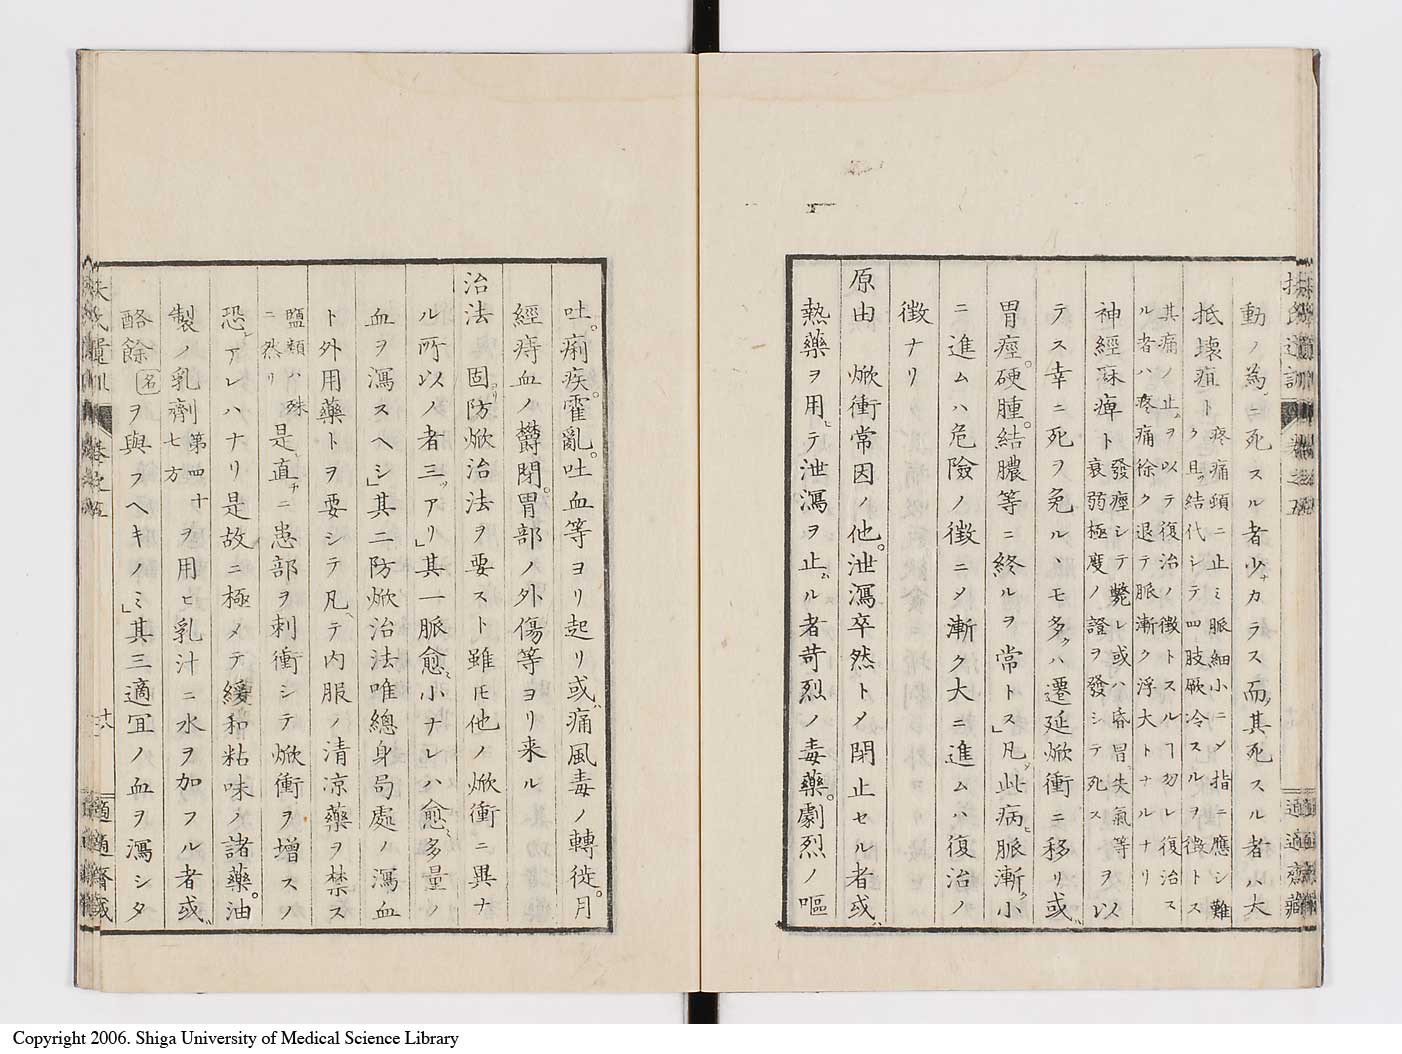 動ノ為ニ死スル者少ナカラス而其死スル者ハ大
抵壊疽ト疼痛頓ニ止ミ脈細小ニシ指ニ應シ難
ク且結代シテ四肢厥冷スルヲ徴トス
其痛ノ止ヲ以テ復治ノ徴トスルヿ勿レ復治ス
ル者ハ疼痛徐ク退テ脈漸ク浮大トナルナリ
神經麻痺ト發痙シテ斃レ或ハ昏冒失氣等ヲ以
衰弱極度ノ證ヲ發シテ死ス
テス幸ニ死ヲ免ルヽモ多クハ遷延焮衝ニ移リ或ハ
胃痙。硬腫。結膿等ニ終ルヲ常トス」凡此病脈漸小
ニ進ムハ危險ノ徴ニメ漸ク大ニ進ムハ復治ノ
徴ナリ
原由 焮衝常因ノ他。泄瀉卒然トメ閉止セル者或ハ
熱藥ヲ用ヒテ泄瀉ヲ止ムル者苛烈ノ毒藥。劇烈ノ嘔
吐。痢疾。霍亂。吐血等ヨリ起リ或ハ痛風毒ノ轉徙。月
經痔血ノ欝閉。胃部ノ外傷等ヨリ来ル
治法 固リ防焮治法ヲ要スト雖𪜈他ノ焮衝ニ異ナ
ル所以ノ者三ツアリ」其一脈愈小ナレハ愈多量ノ
血ヲ瀉スヘシ」其二防焮治法唯總身局處ノ瀉血
ト外用藥トヲ要シテ凡テ内服ノ清凉藥ヲ禁ス
鹽類ハ殊
ニ然リ
是直チニ患部ヲ刺衝シテ焮衝ヲ增スノ
恐アレハナリ是故ニ極メテ緩和粘味ノ諸藥。油
製ノ乳劑第四十
七方
ヲ用ヒ乳汁ニ水ヲ加フル者或ハ
酪餘名ヲ與フヘキノミ」其三適冝ノ血ヲ瀉シタ
適適齋藏